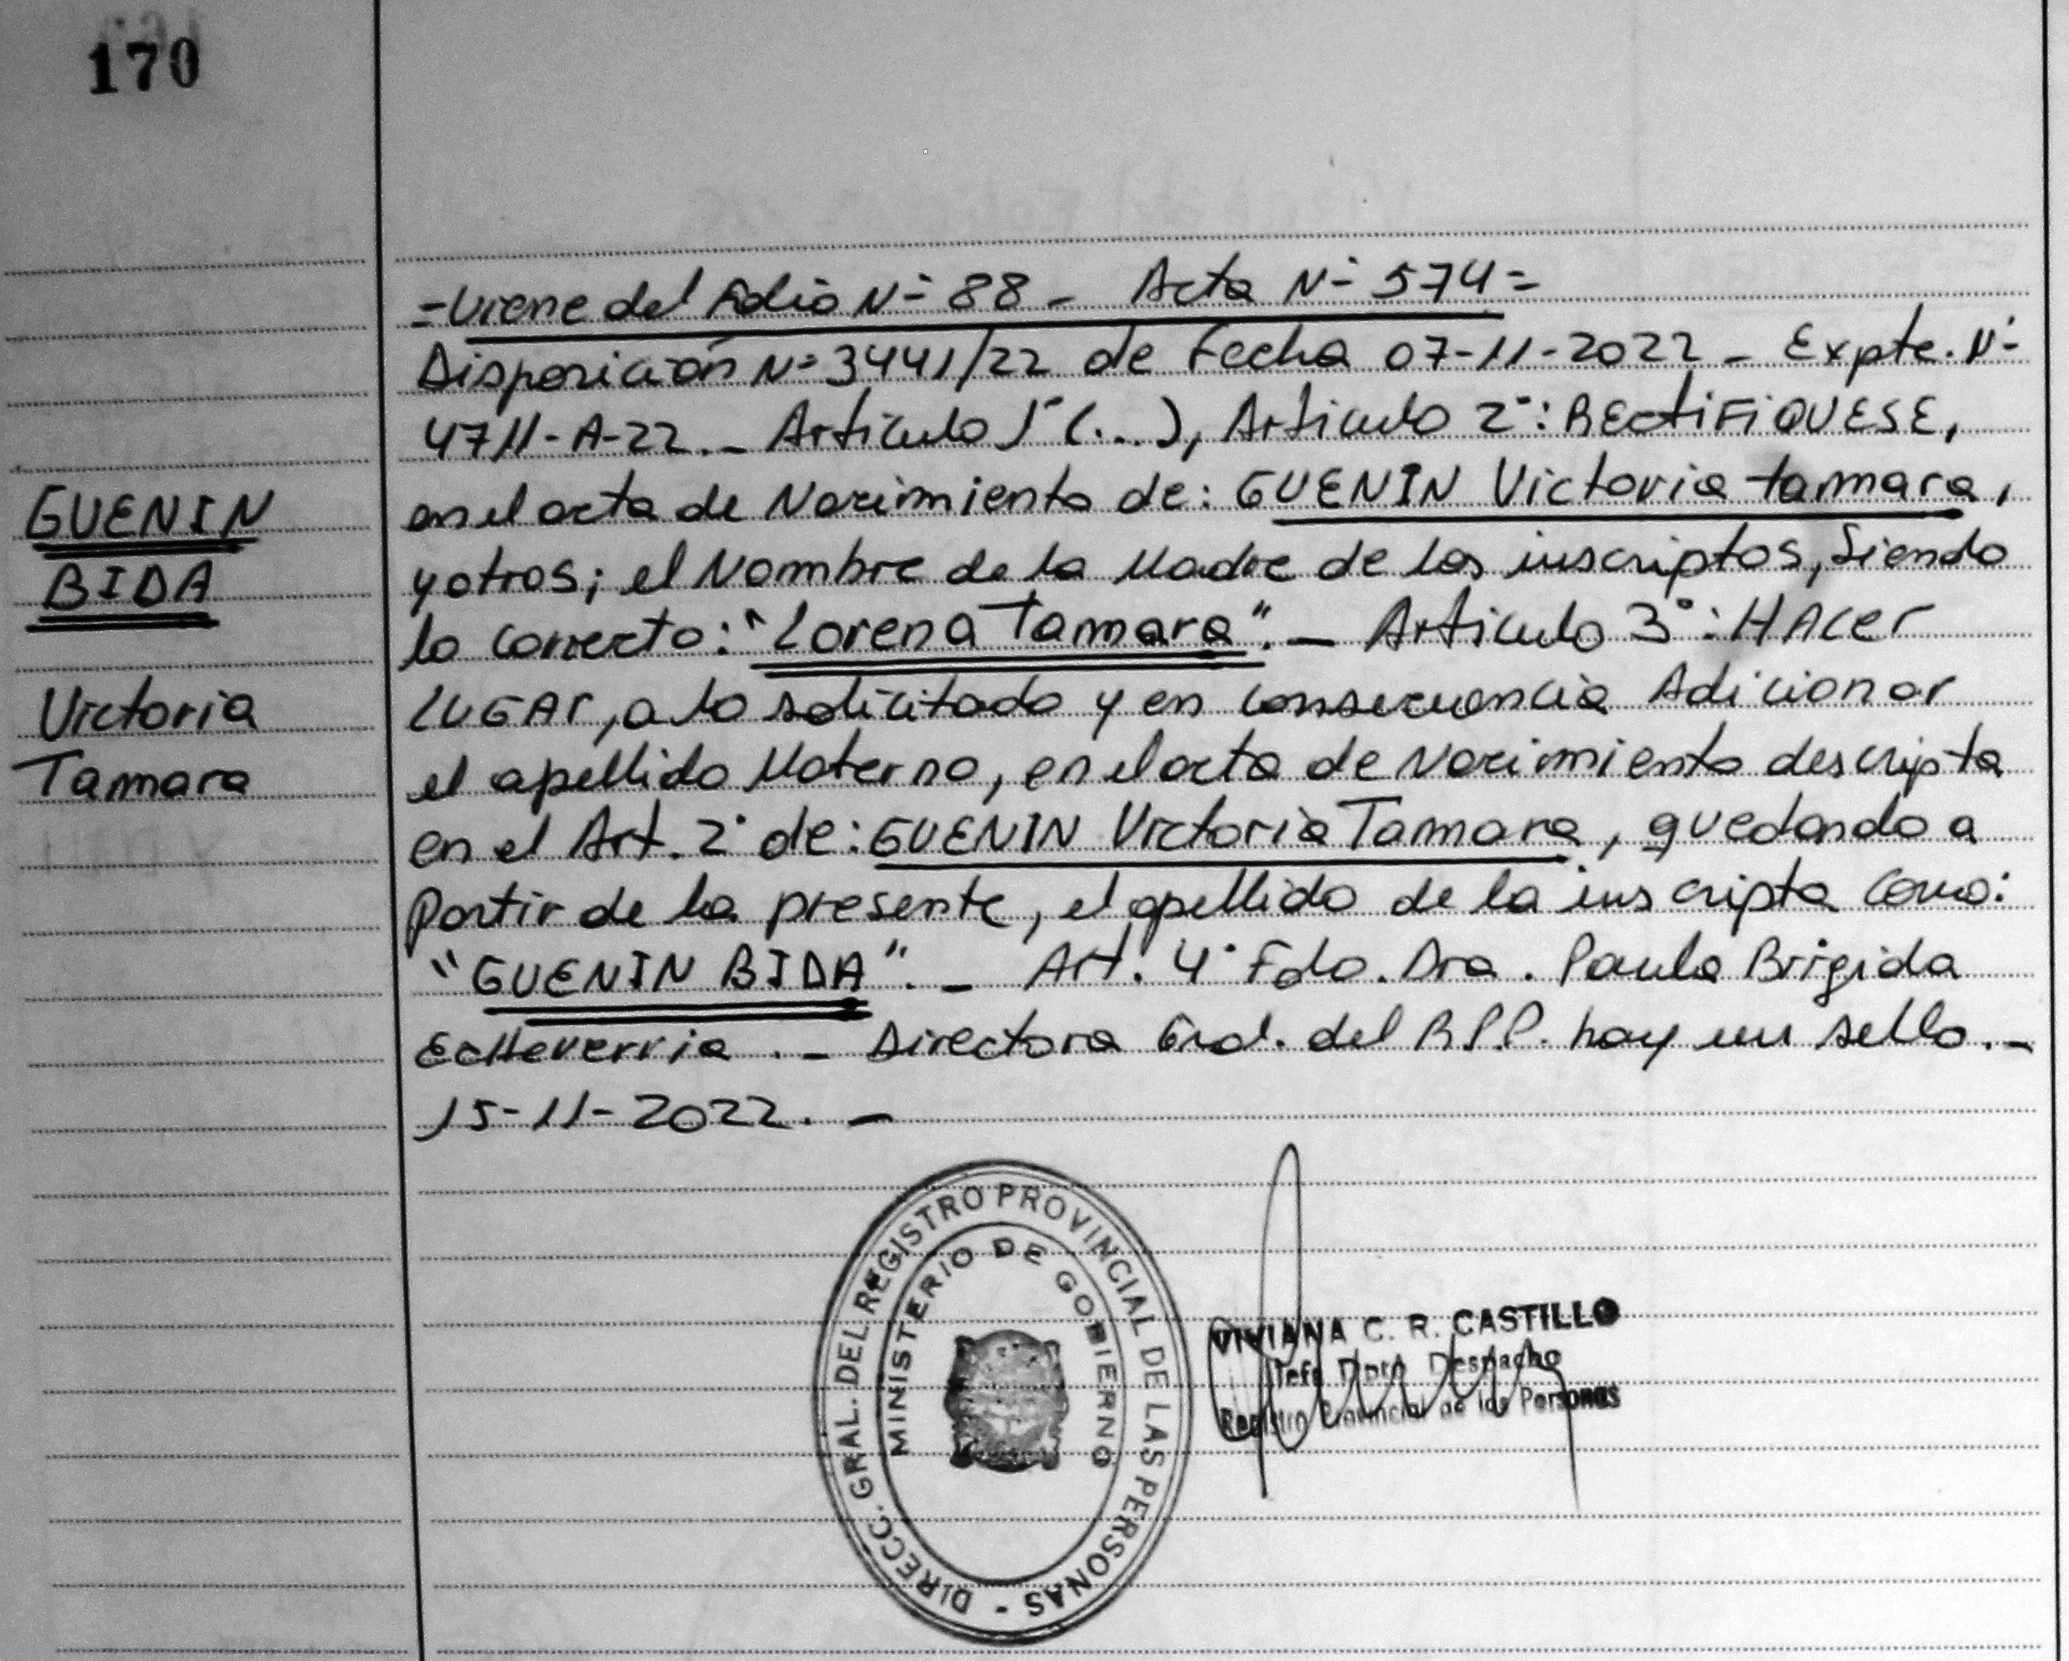 170
=Viene del Folio N= 88 - Acta N= 574=
Disposición N= 3441/22 de Fecha 07-11-2022 - Expte. N=
4711-A-22.- Articulo 1° (...), Articulo 2°: RECtiFiQUESE,
en el acta de Nacimiento de: GUENIN Victoria tamara,
y otros; el Nombre de la Madre de los inscriptos, Siendo
lo correcto: "Lorena Tamara".- Articulo 3°: HAcer
LUGAr, a lo solicitado y en consecuencia Adicionar
el apellido Materno, en el acta de Nacimiento descripta
en el Art. 2° de: GUENIN Victoria Tamara, quedando a
Partir de la presente, el apellido de la inscripta Como:
"GUENIN BIDA".- Art. 4° Fdo. Dra. Paula Brigida
Echeverria .- Directora Gral. del R.P.P. hay un sello.-
15-11-2022. -
GUENIN
BIDA
Victoria
Tamara
DIRECC. GRAL. DEL REGISTRO PROVINCIAL DE LAS PERSONAS -
MINISTERIO DE GOBIERNO
VIVIANA C. R. CASTILLO
Jefe Dpto Despacho
Registro Provincial de las Personas